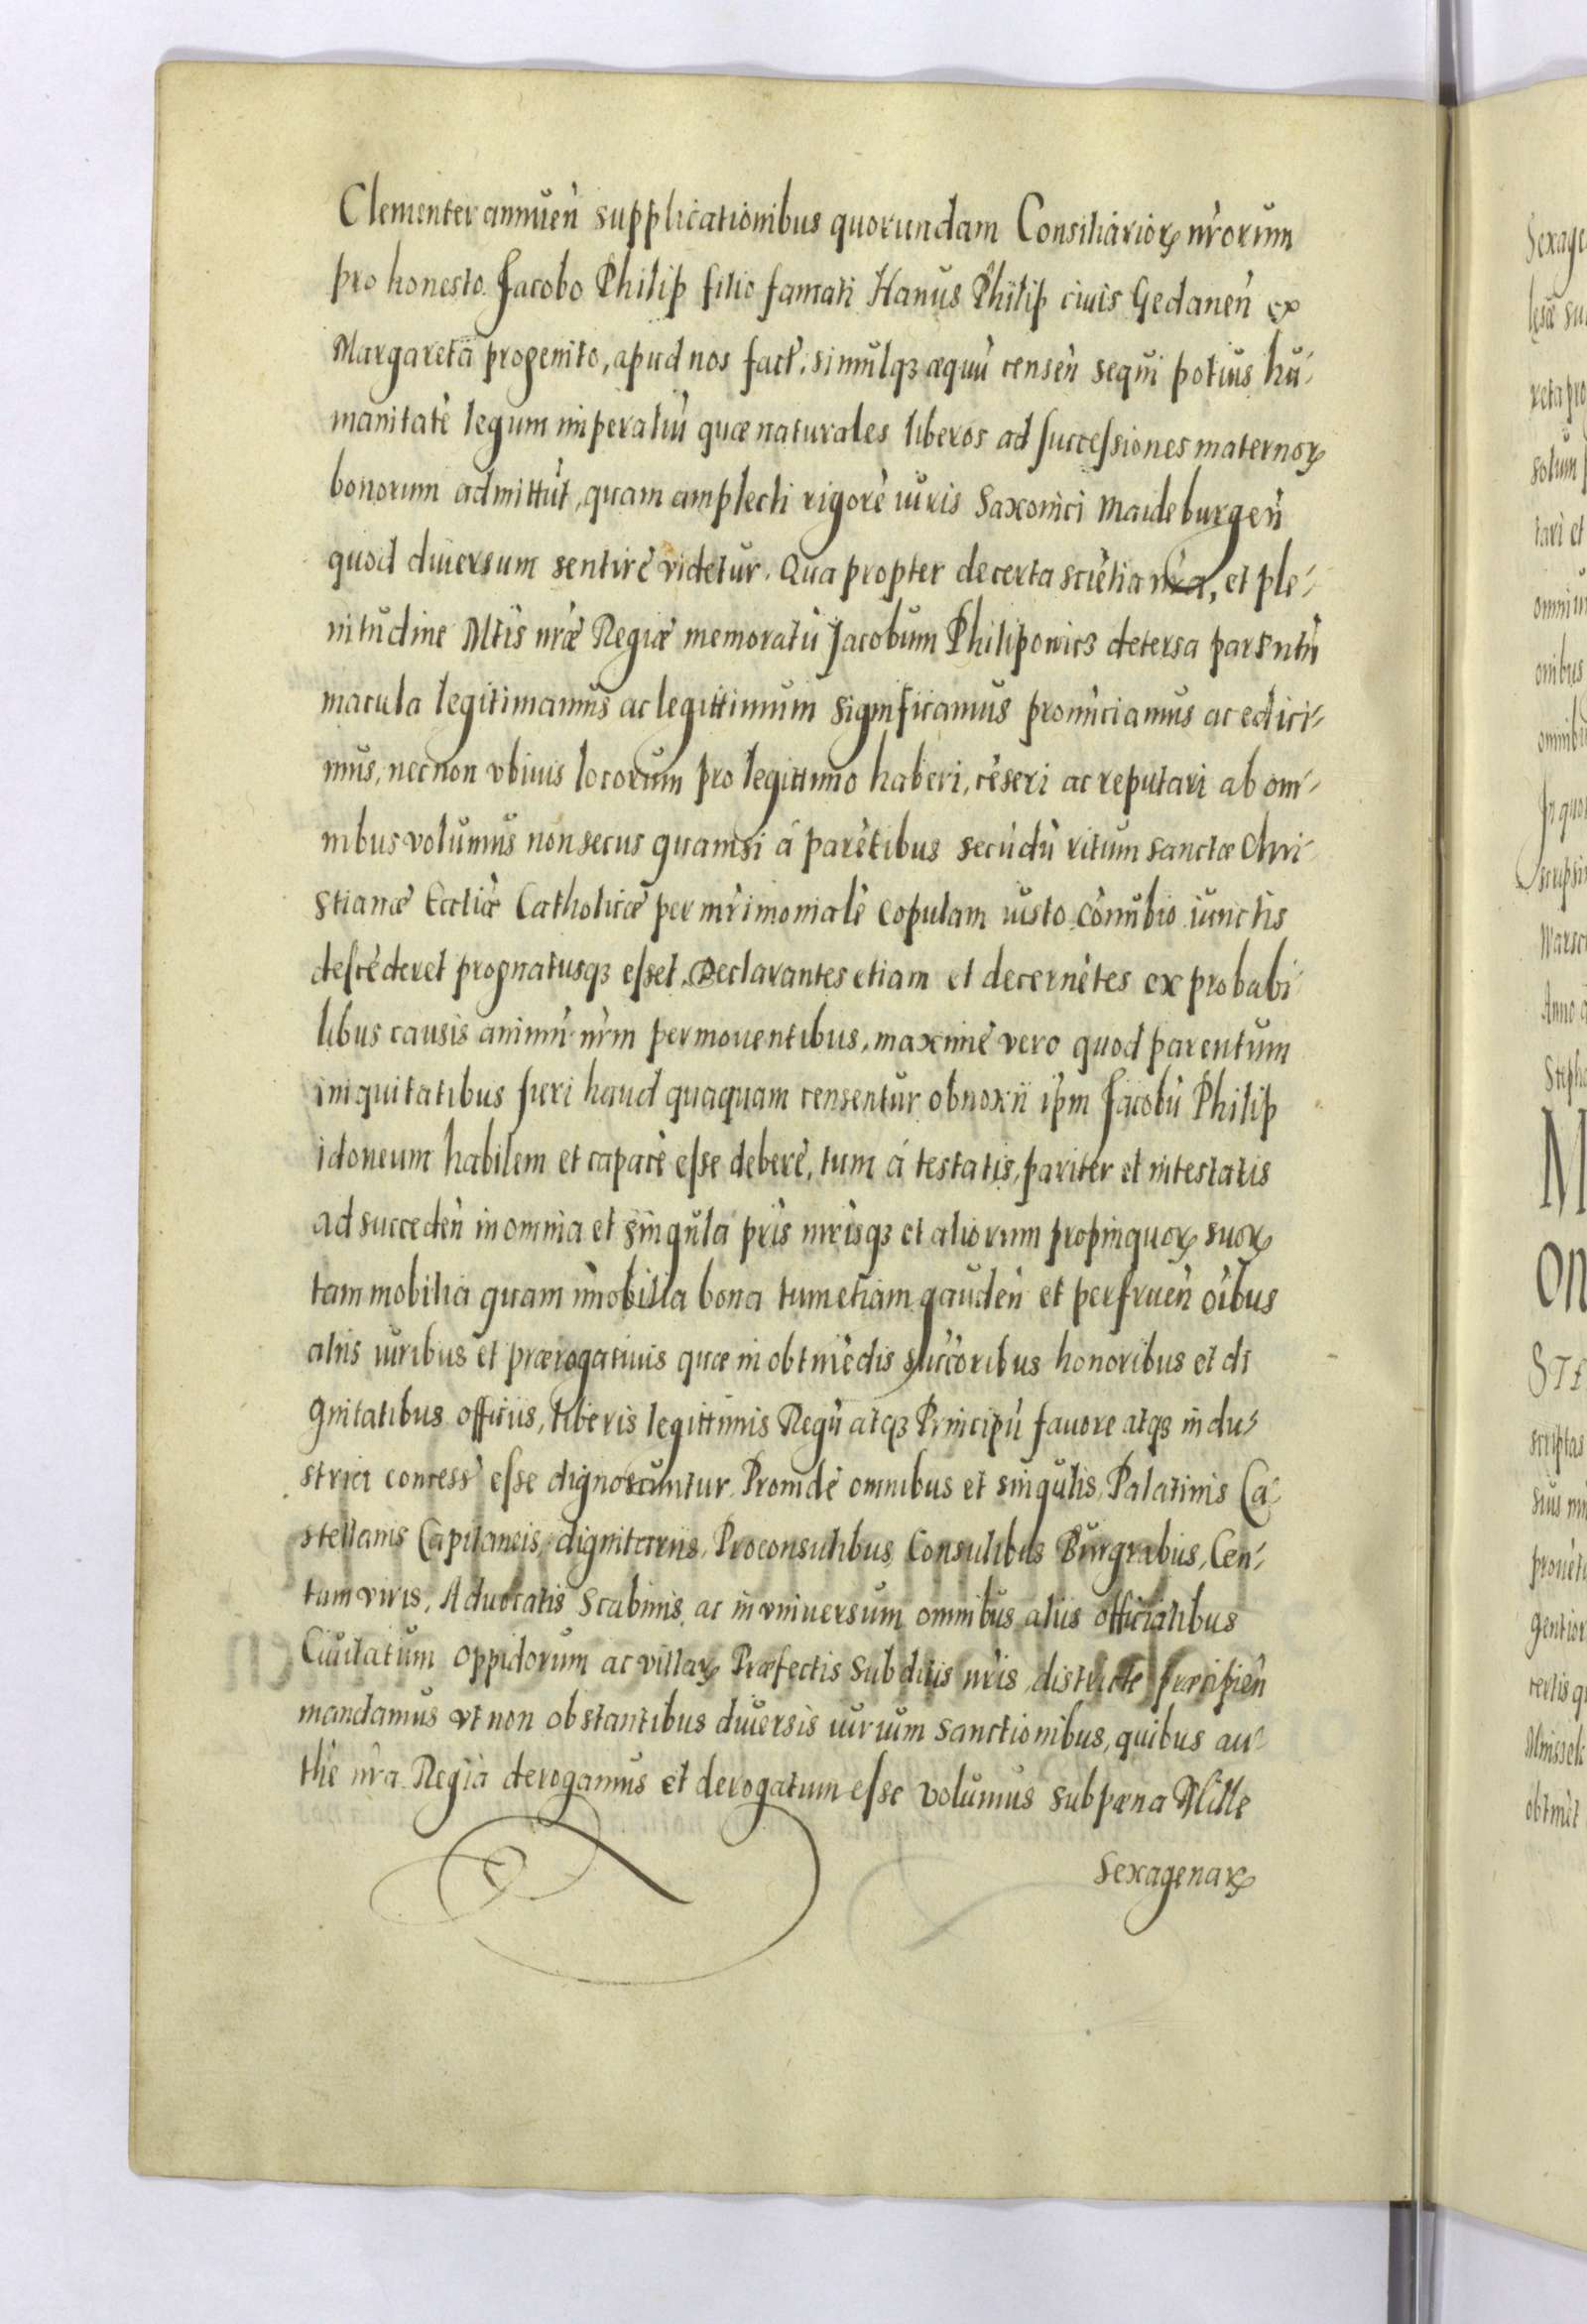 Clementer annuen̄ supplicationibus quorundam Consiliarioꝝ nr̄orum
pro honesto Jacobo Philip filio famati Hanus Philip ciuis Gedanen̄ ex
Margareta progenito, apud nos fact̄, simulqꝫ æquū censen̄ sequi potius hu-
manitatē legum imperatiū quæ naturales liberos ad successiones maternoꝝ
bonorum admittūt, quam amplecti rigorē iuris Saxonici Maideburgen̄
quod diuersum sentire videtur. Qua propter de certa sciētia nr̄a, et ple-
nitudine Mtis nr̄æ Regiæ memoratū Jacobum Philipowicz detersa parentū
macula legitimamus ac legittimum significamus pronūciamus ac edici-
mus, nec non vbiuis locorum pro legittimo haberi, cēseri ac reputari ab om-
nibus volumus non secus quamsi á parētibus secūdū ritum sanctæ Chri-
stianæ Eccliæ Catholicæ per mr̄imonialē copulam iusto cōnubio iunctis
descēderet prognatusqꝫ esset. Declarantes etiam et decernētes ex probabi-
libus causis animū nr̄m permouentibus, maxime vero quod parentum
iniquitatibus fieri haud quaquam censentur obnoxii ip̄m Jacobū Philip
idoneum habilem et capacē esse debere, tum á testatis, pariter et intestatis
ad succeden̄ in omnia et singula pr̄is mr̄isqꝫ et aliorum propinquoꝝ suoꝝ
tam mobilia quam im̄obilia bona tum etiam gauden̄ et perfruen̄ oībus
aliis iuribus et prærogatiuis quæ in obtinēdis succ̄oribus honoribus et di
gnitatibus officiis, liberis legittimis Regū atqꝫ Principū fauore atqꝫ indu-
stria concess̄ esse dignoscuntur. Proinde omnibus et singulis, Palatinis Ca-
stellanis Capitaneis, dignitariis, Proconsulibus, Consulibus Burgrabiis, Cen-
tumviris, Aduocatis Scabinis, ac in vniuersum omnibus aliis officialibus
Ciuitatum Oppidorum ac villaꝝ Præfectis Subditis nr̄is districte præcipien̄
mandamus vt non obstantibus diuersis iurium sanctionibus, quibus au-
thē nr̄a Regia derogamus et derogatum esse volumus sub pœna Mille
Sexagenaꝝ